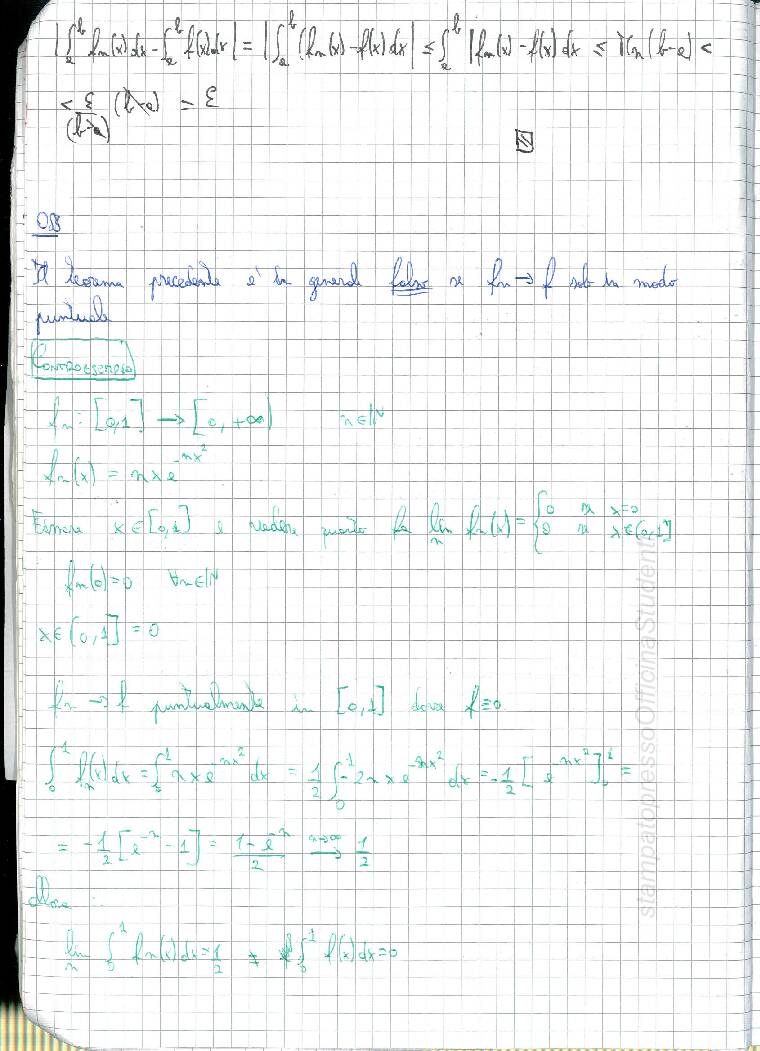 |∫_a^b fn(x)dx - ∫_a^b f(x)dx| = |∫_a^b (fn(x) - f(x)dx| ≤ ∫_a^b |fn(x) - f(x)dx ≤ Mn(b-a) <
< ε/(b-a) (b-a) = ε
OSS
Il teorema precedente è in generale falso se fn → f solo in modo
puntuale
CONTROESEMPIO
fn: [0,1] → [0,+∞) n∈ℕ
fn(x) = nxe^-nx²
Essere x∈[0,1] e vedere quanto fa lim_n fn(x) = {0 se x=0
0 se x∈(0,1]
fn(0)=0 ∀n∈ℕ
x∈(0,1] = 0
fn → f puntualmente in [0,1] dove f≡0
∫_0^1 fn(x)dx = ∫_0^1 nxe^-nx² dx = 1/2 ∫_0^1 -2nxe^-nx² dx = -1/2 [e^-nx²]_0^1 =
= -1/2 [e^-n - 1] = (1-e^-n)/2 →^(n→∞) 1/2
Allora :
lim_n ∫_0^1 fn(x)dx = 1/2 ≠ ∫_0^1 f(x)dx = 0
stampatopressoOfficinaStudenti